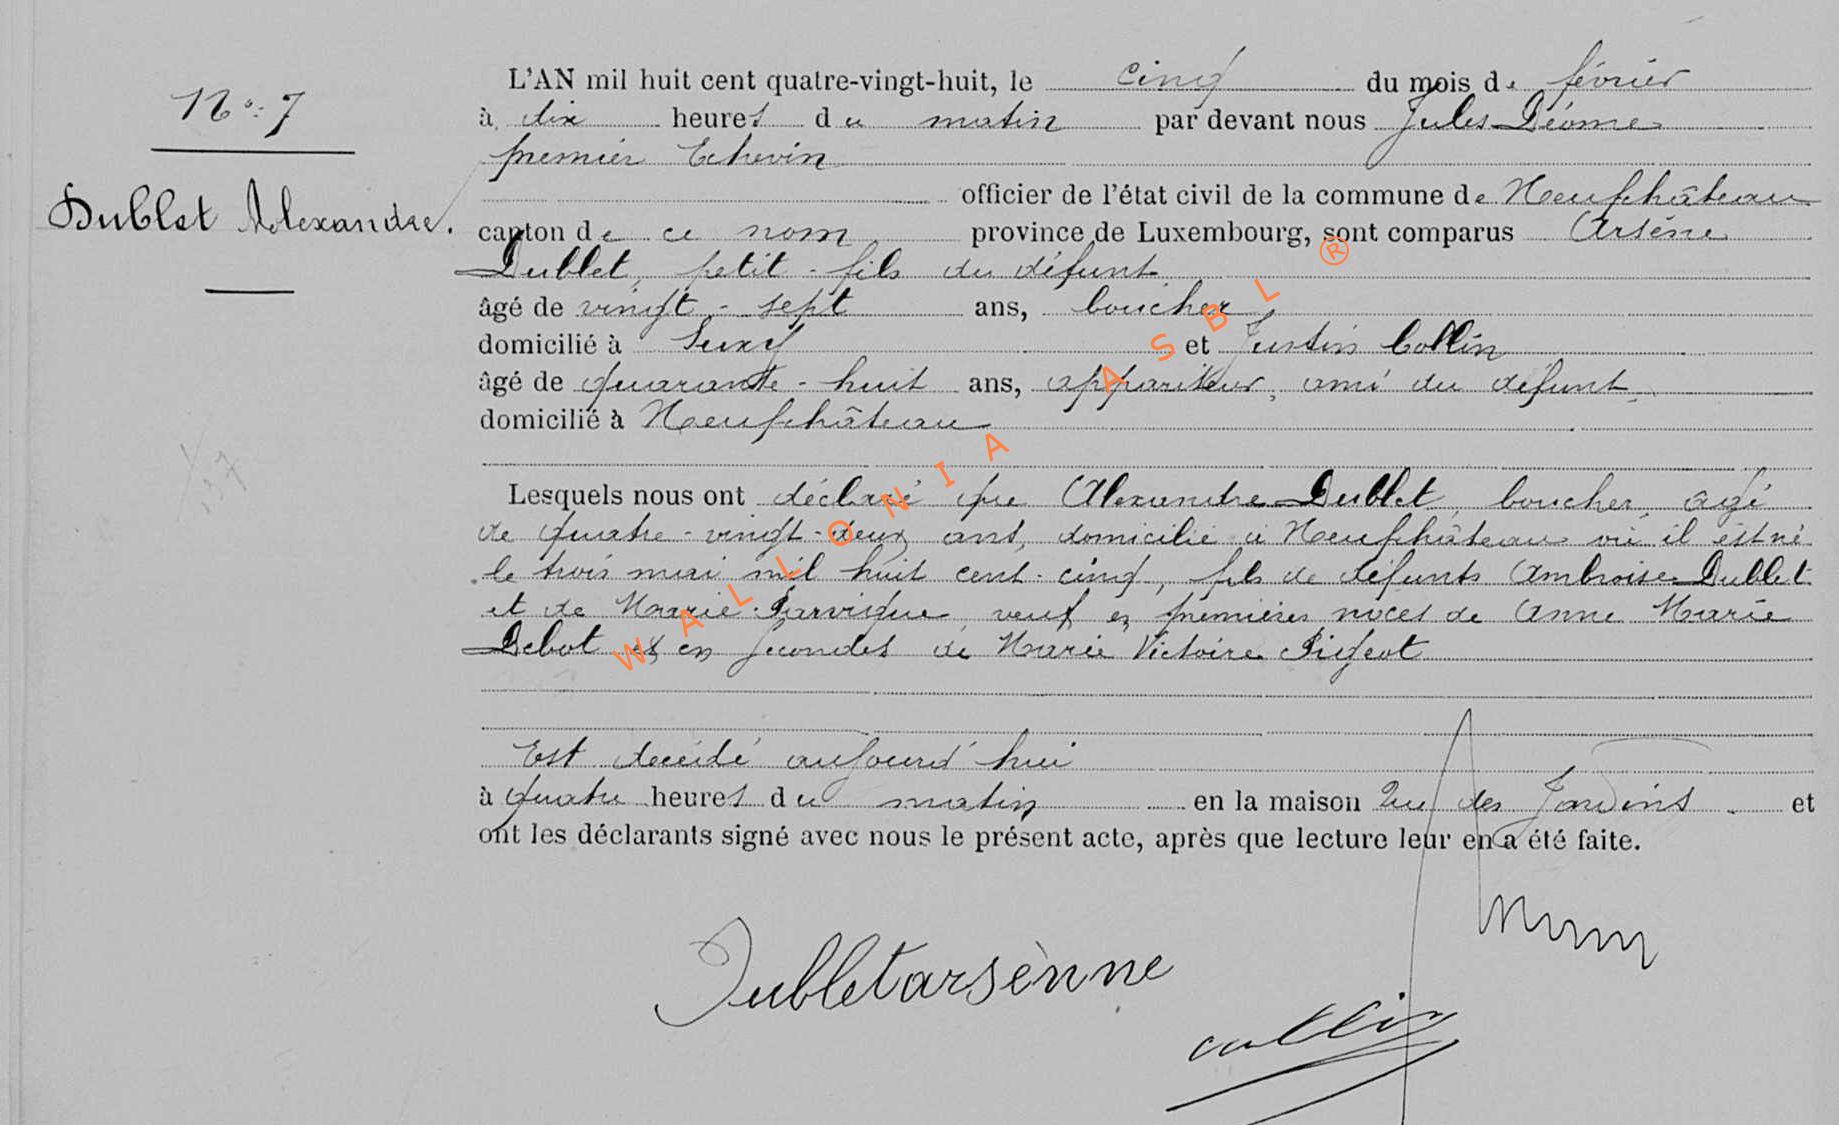 N° 7
Dublet Alexandre.
L'AN mil huit cent quatre-vingt-huit, le cinq du mois de février
à dix heures du matin par devant nous Jules Déome
premier Echevin
officier de l'état civil de la commune de Neufchâteau
canton de ce nom province de Luxembourg, sont comparus Arsène
Dublet, petit-fils du défunt
âgé de vingt-sept ans, boucher
domicilié à Suxy et Justin Collin
âgé de quarante-huit ans, appariteur, ami du défunt,
domicilié à Neufchâteau
Lesquels nous ont déclaré que Alexandre Dublet, boucher, âgé
de quatre-vingt-deux ans, domicilié à Neufchâteau où il est né
le trois mai mil huit cent-cinq, fils de défunts Ambroise Dublet
et de Marie Parvisque, veuf en premières noces de Anne Marie
Debot et en secondes de Marie Victoire Pigeot
Est décédé aujourd'hui
à quatre heures du matin en la maison Rue des Jardins et
ont les déclarants signé avec nous le présent acte, après que lecture leur en a été faite.
Dubletarsènne
collin
WALLONIA ASBL ®